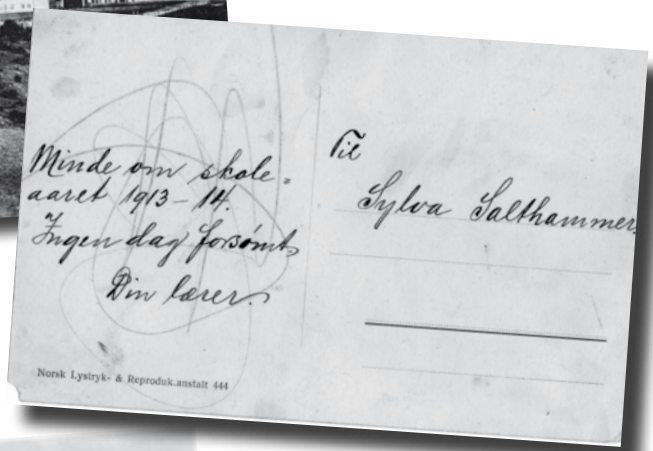 Minde om skole-
aaret 1913-14.
Ingen dag forsømt.
Din lærer.
Til
Sylva Salthammer.
Norsk Lystryk- & Reproduk.anstalt 444